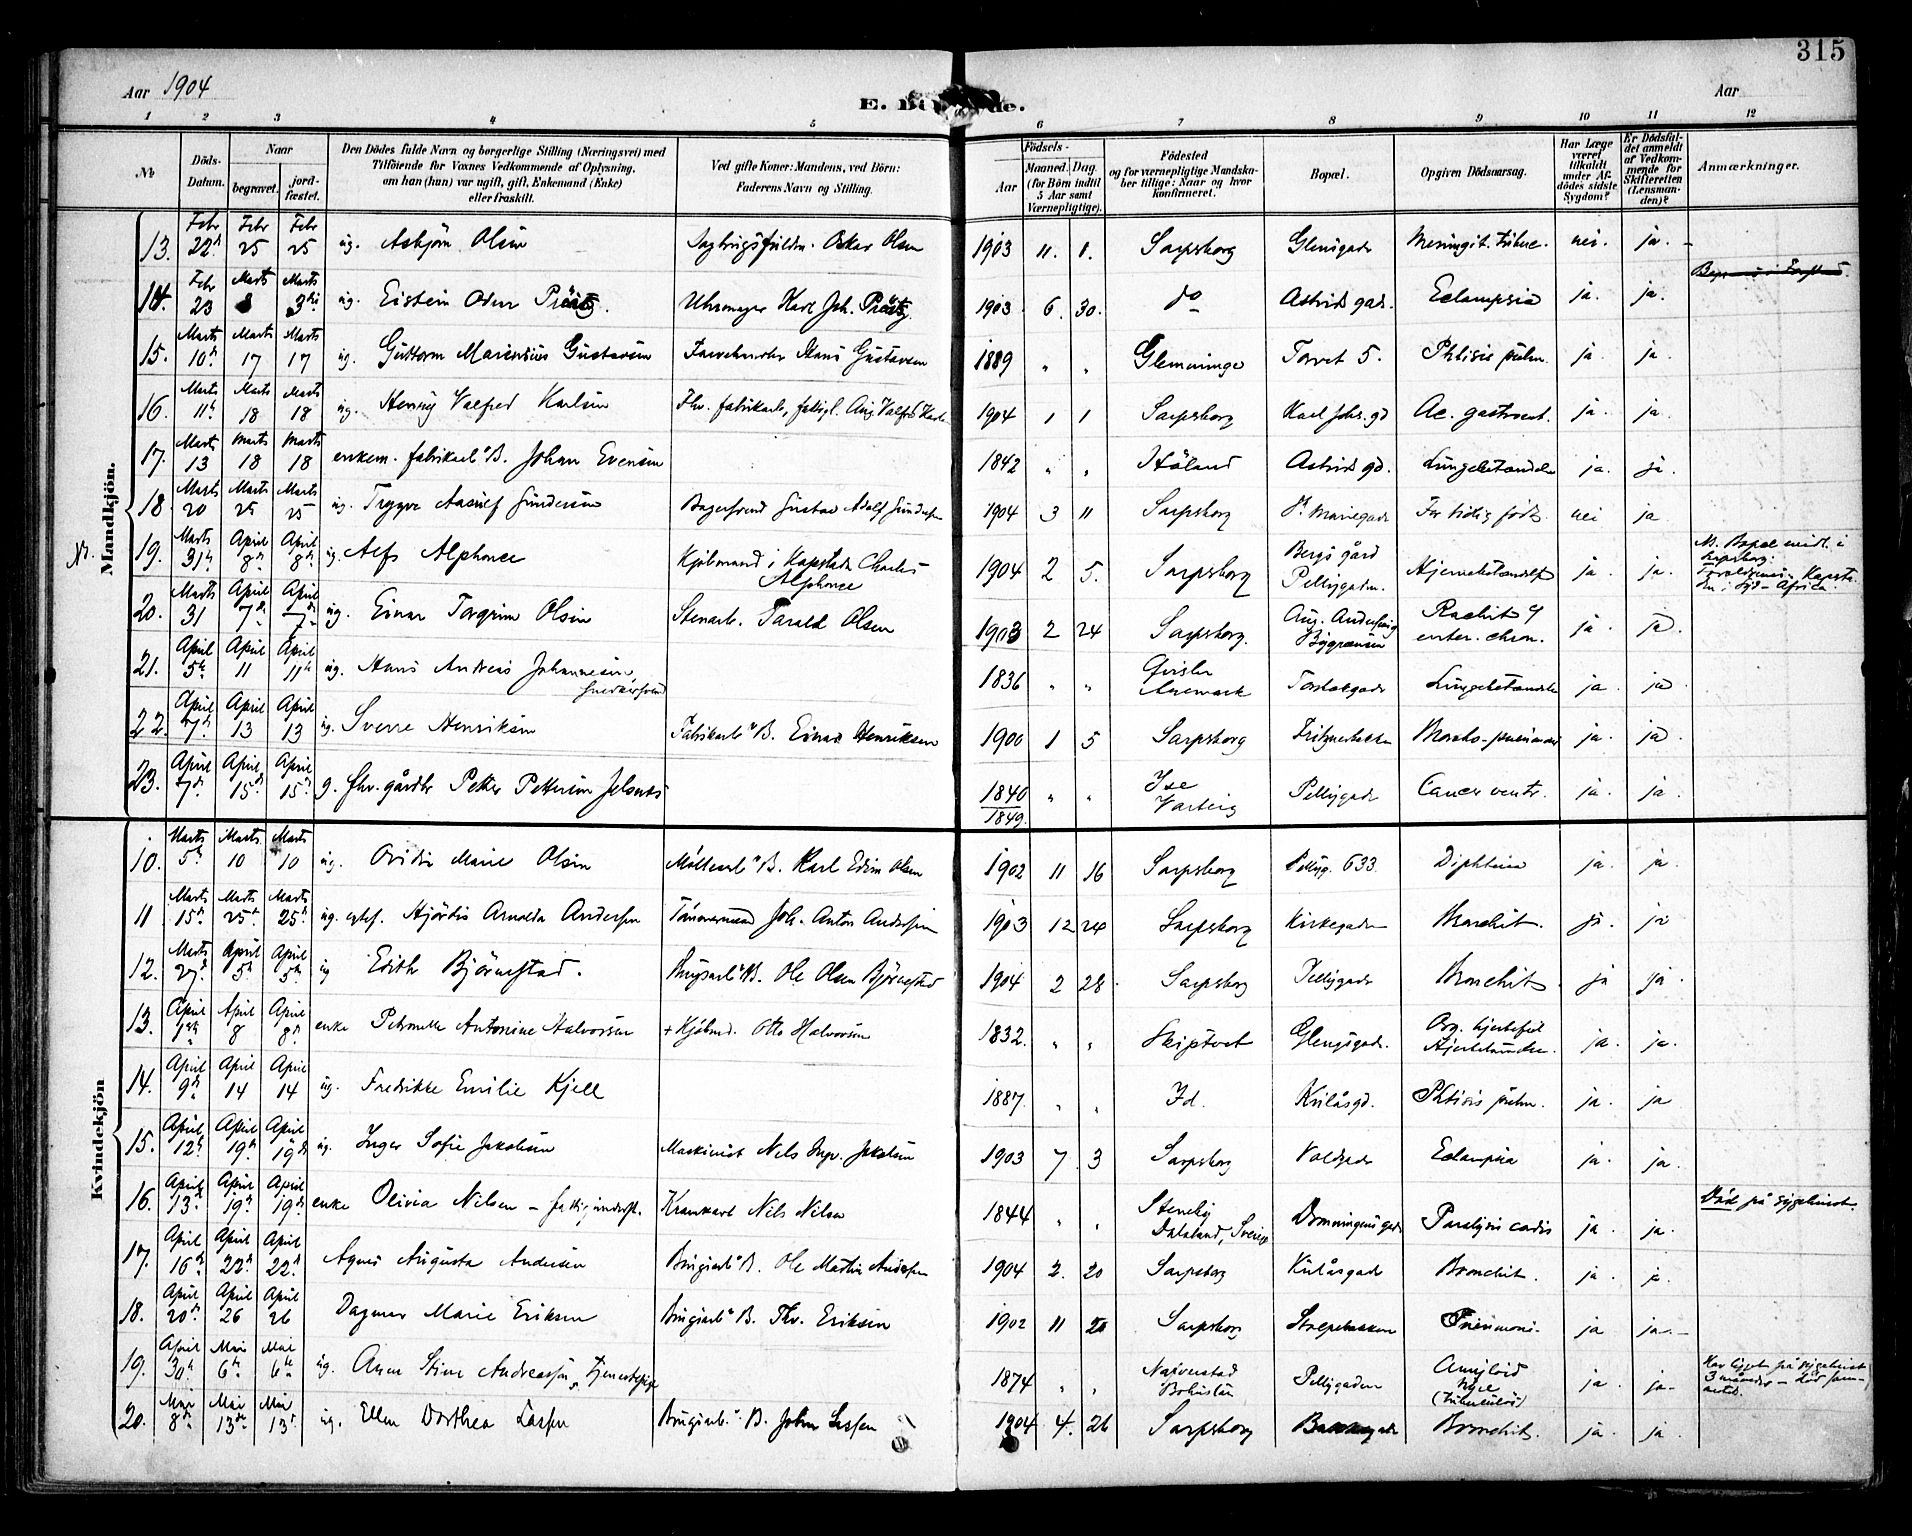 315
Aar 1904
Aar
1 2 3 4 5 6 7 8 9 10 11 12
No
Döds-Datum.
Naar
begravet.
jord-fæstet.
Den Dödes fulde Navn og borgerlige Stilling (Næringsvei) med
Tilföiende for Voxnes Vedkommende af Oplysning,
om han (hun) var ugift, gift, Enkemand (Enke)
eller fraskilt.
Ved gifte Koner: Mandens, ved Börn:
Faderens Navn og Stilling.
Födsels-
Aar
Maaned. Dag.
(for Börn indtil
5 Aar samt
Værnepligtige).
Födested
og for værnepligtige Mandska-
ber tillige: Naar og hvor
konfirmeret.
Bopæl.
Opgiven Dödsaarsag.
Har Læge
været
tilkaldt
under Af-
dödes sidste
Sygdom?
Er Dödsfal-
det anmeldt
af Vedkom-
mende for
Skifteretten
(Lensman-
den)?
Anmærkninger.
Mandkjön.
13. Febr 22d Febr 25 Febr 25 ug. Asbjörn Olsen Oskar Olsen 1903 11. 1. Sarpsborg Glengsgade Meningit. tuberc. nei. ja.
14. Febr 23 Marts 3 Marts ug. Eistein Oden Uhrmager Karl Joh. 1903 6. 30. do Astrids gade. Eclampsia ja. ja.
15. Marts 10d Marts 17 Marts 17 ug. Guttorm Marensius Gustavsen Farvehandler Hans Gustavsen 1889 " " Glemminge Torvet 5. Phtisis pulm. ja. ja.
16. Marts 11d Marts 18 Marts 18 ug. Henry Valfred Karlsen Fhv. fabrikarb., Aug. Valfred 1904 1 1 Sarpsborg Karl Johs. gd Ac. gastroent. ja. ja.
17. Marts 13 Marts 18 Marts 18 enkem. fabrikarb B. Johan Evensen 1842 " " Höland Astrids gd. Lungebetændelse ja. ja.
18. Marts 20 Marts 25 Marts 25 ug. Trygve Gundersen Bagersvend Gustav Adolf Gundersen 1904 3 11 Sarpsborg St. Mariegade For tidlig födt. nei ja
19. Marts 31te April 8de April 8de ug. Alfs Alphonce Kjöbmand i Kapstaden Charles
Alphonce 1904 2 5. Sarpsborg Bergs gård
Pellygaden. Hjernebetændelse ja ja. Bopæl midl. i
Sarpsborg.
Kapsta-
den i Syd-Africa.
20. Marts 31 April 7de April 7de ug. Einar Torgrim Olsen Stenarb. Tarald Olsen 1903 2 24 Sarpsborg. Aug. Andersens Rachit og
enter. chron. ja. ja.
21. April 5te April 11 April 11te ug. Hans Andreas Johannesen,
snedkersvend 1836 " " Aremark Torsbekgade Lungebetændelse ja. ja
22. April 7de April 13 April 13 ug. Sverre Henriksen Fabrikarb B. Einar Henriksen 1900 1 5 Sarpsborg Fritznerbakken ja. ja
23. April 7de April 15de April 15de g. fhv. gårdbr Petter Pettersen 1840
1849. " " Ise
Varteig Pellygade Cancer ventr. ja. ja.
Kvindekjön
10. Marts 5te Marts 10 Marts 10 ug. Ovidia Marie Olsen B. Karl Edvin Olsen 1902 11 16 Sarpsborg Pellyg. 633. Diphteria ja. ja.
11 Marts 15de Marts 25de Marts 25de ug. Hjördis Arnolda Andersen Joh. Anton Andersen 1903 12 24 Sarpsborg Kirkegaden Bronchit. ja. ja
12. Marts 27de April 5te April 5te ug Edith Björnestad. Brugsarb B. Ole Olsen Björnestad 1904 2 28. Sarpsborg Pellygade Bronchit. ja ja.
13. April 1ste April 8 April 8de enke Petronelle Antonine Halvorsen + Kjöbmd. Otto Halvorsen 1832. " " Skiptvet Glengsgade. Org. hjertefeil ja. ja.
14. April 9de April 14 April 14 ug. Fredrikke Emilie Kjell 1887. " " Id. Kulåsgd. Phtisis pulm. ja. ja
15. April 12te April 19de April 19de ug. Inger Sofie Jakobsen Maskinist Nels Ingv. Jakobsen 1903 7. 3 Sarpsborg Voldgade Eclampsia ja. ja.
16. April 13de April 19de April 19de enke Olivia Nilsen Nils Nilsen 1844 " " Steneby
Dalsland, Sverige Dronningensgade Paralysis cordis ja. ja. Död på sygehuset.
17. April 16de April 22de April 22de Agnes Augusta Andersen B. Ole Martin Andersen 1904 2. 20 Sarpsborg Kulåsgade Bronchit. ja. ja.
18. April 20de April 26 April 26 Dagmar Marie Eriksen B. Thv. Eriksen 1902 11 20 Sarpsborg Pneumoni. ja ja.
19. April 30te Mai 6te Mai 6te ug. Anne Stine Andreassen, tjenestepige 1874 " " Naverstad
Bohuslen Pellygaden Amyloid
nyre
(tuberculös) ja. ja. Har ligget på sygehuset
3 måneder
20. Mai 8de Mai 13de Mai 13de ug. Ellen Dorthea Lassen B. John Lassen 1904 4. 26 Sarpsborg Bronchit. ja. ja.